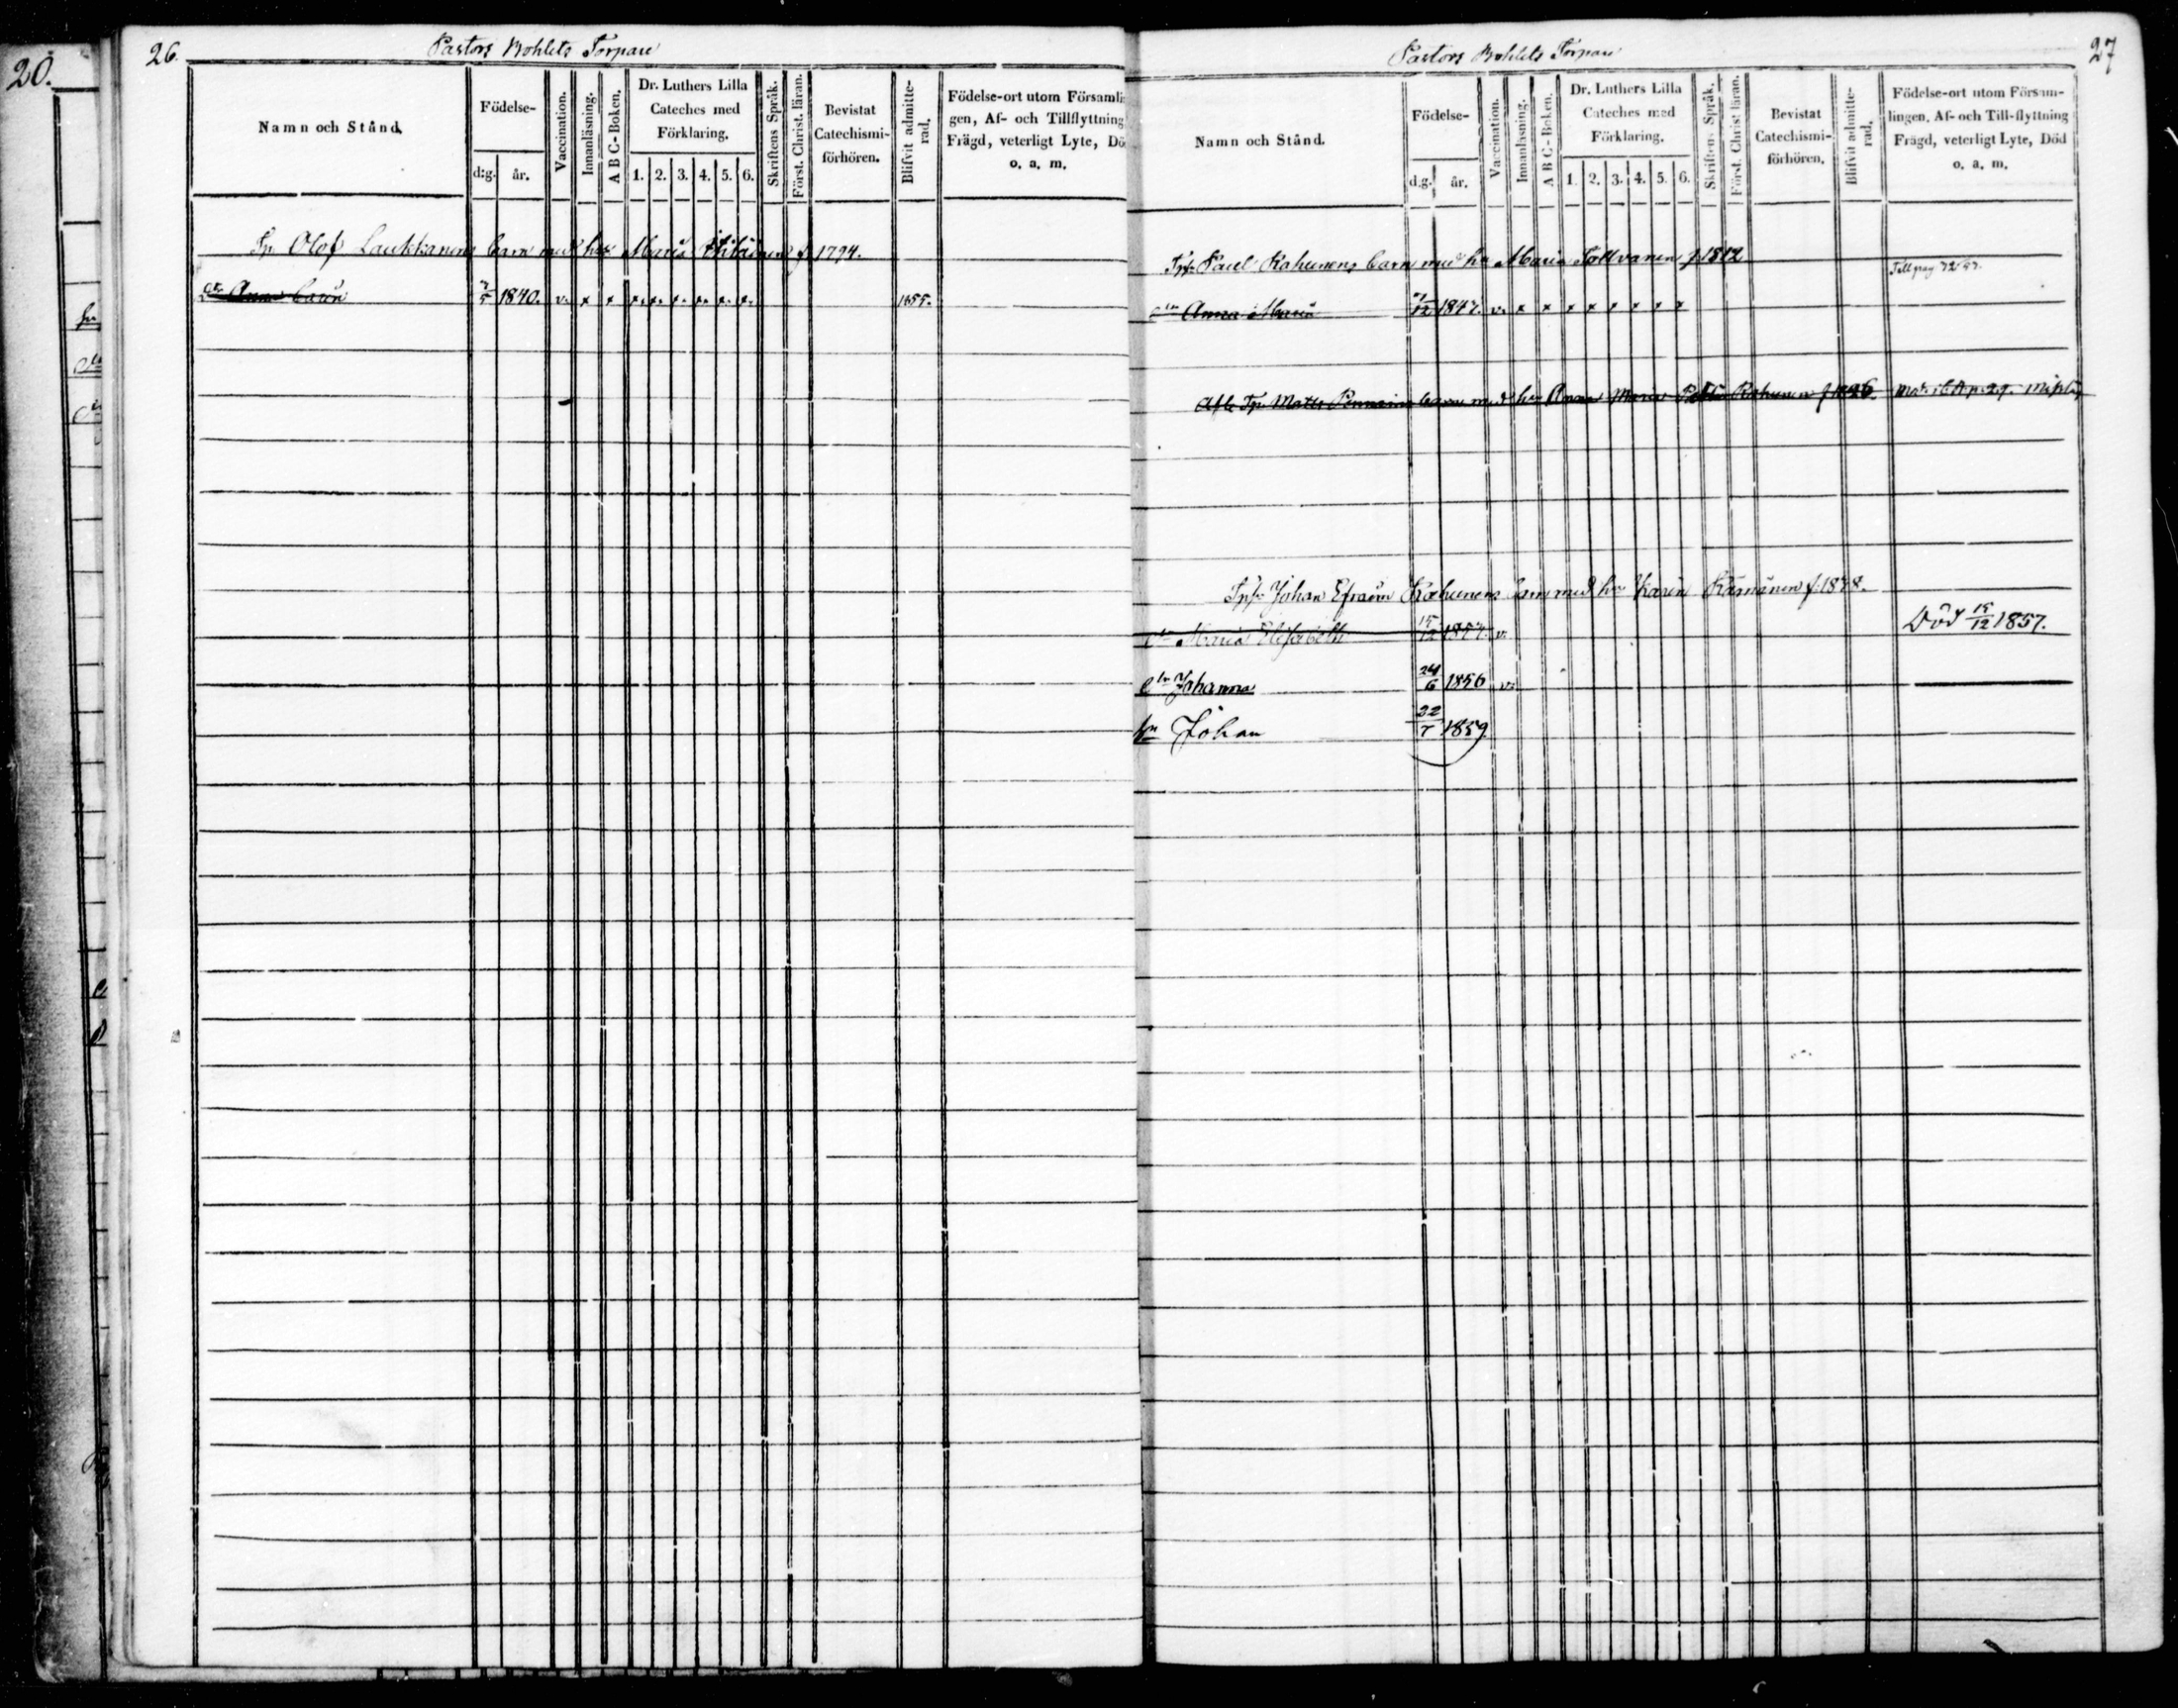 20.
26.
Pastors Bohlets Torpare
Namn och Stånd.
Födelse-
d:g. år.
Vaccination.
Innanläsning.
A B C-Boken.
Dr. Luthers Lilla
Cateches med
Förklaring.
1. 2. 3. 4. 5. 6.
Skriftens Språk.
Först. Christ. läran.
Bevistat
Catechismi-
förhören.
Blifvit admitte-
rad.
Födelse-ort utom Församli
gen, Af- och Tillflyttning
Frägd, veterligt Lyte, Dö
o. a. m.
Tp. Olof Laukkanens barn med h: Maria f 1794.
Anna Carin 1840. v. x x x. x. x. x. x. x. 1855.
Pastors Bohlets Torpare
27
Namn och Stånd.
Födelse-
d.g. år.
Vaccination.
Innanläsning.
A B C-Boken.
Dr. Luthers Lilla
Cateches med
Förklaring.
1. 2. 3. 4. 5. 6.
Skriftens Språk.
Först. Christ läran.
Bevistat
Catechismi-
förhören.
Blifvit admitte-
rad.
Födelse-ort utom Försam-
lingen, Af- och Till-flyttning
Frägd, veterligt Lyte, Död
o. a. m.
Paul Kahunens barn med h: Maria Tollvanen f 1812
Anna Maria 1847. v. x x x x x x x x
Tp. Matts barn med h: Anna Maria Kahunen
Johan Efraim Kahunens barn med h: Karin f: 1828.
Maria Elisabeth 15/12 v. Död 15/12 1857.
Johanna 24/6 1856 v.
Johan 22/7 1859